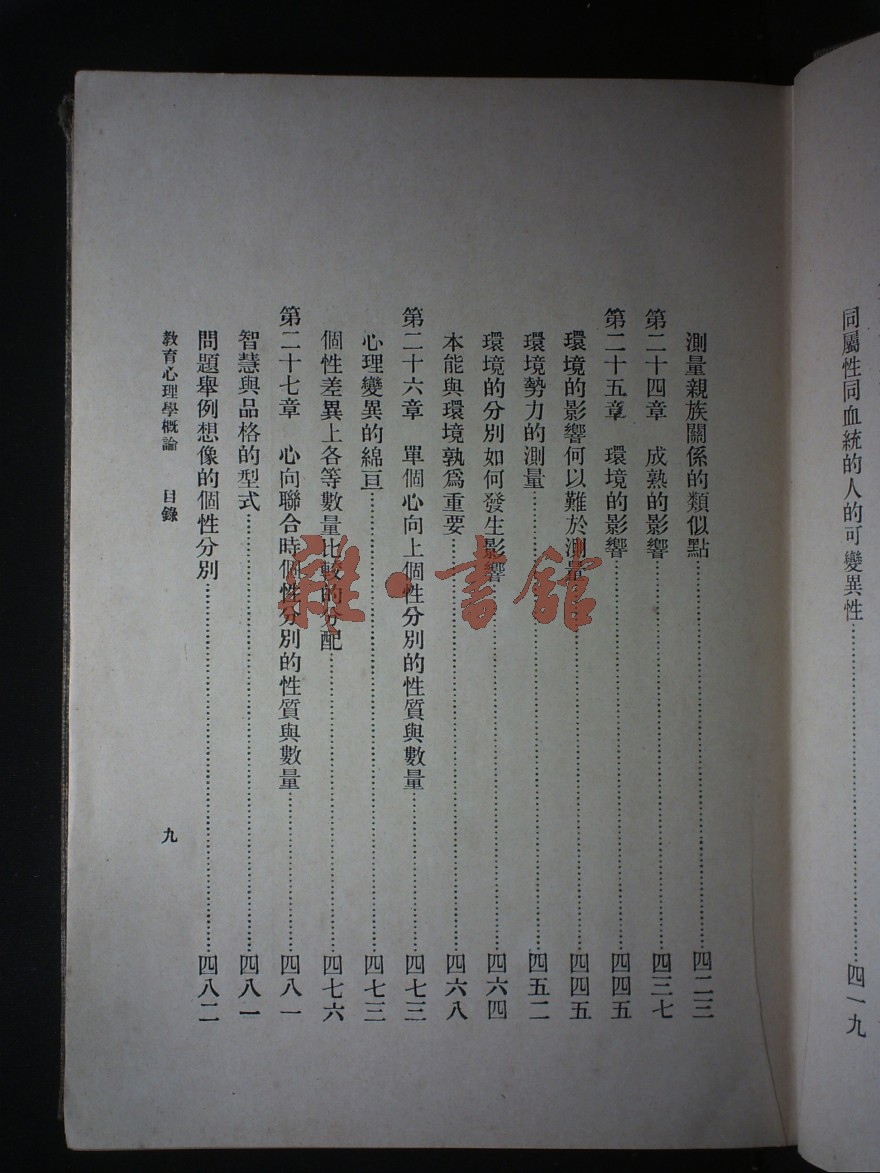 同屬性同血統的人的可變異性……四一九
測量親族關係的類似點……四二三
第二十四章　成熟的影響……四三七
第二十五章　環境的影響……四四五
環境的影響何以難於測量……四四五
環境勢力的測量……四五二
環境的分別如何發生影響……四六四
本能與環境孰爲重要……四六八
第二十六章　單個心向上個性分別的性質與數量……四七三
心理變異的綿亘……四七三
個性差異上各等數量比較的分配……四七六
第二十七章　心向聯合時個性分別的性質與數量……四八一
智慧與品格的型式……四八一
問題舉例想像的個性分別……四八二
教育心理學概論　目錄　九
雜·書館